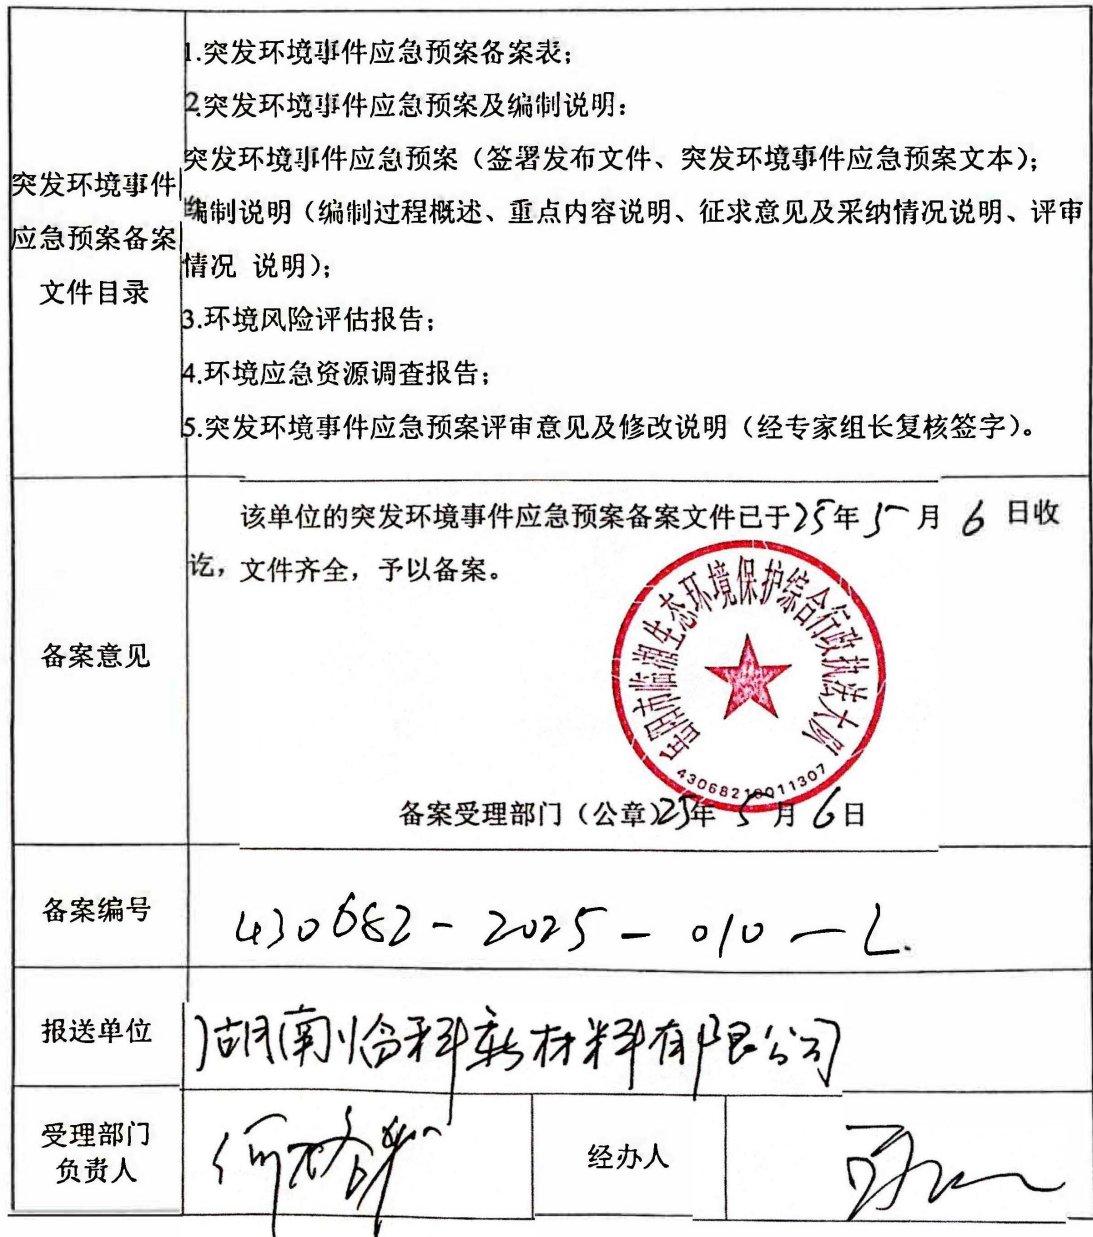 突发环境事件
应急预案备案
文件目录
1.突发环境事件应急预案备案表；
2.突发环境事件应急预案及编制说明：
突发环境事件应急预案（签署发布文件、突发环境事件应急预案文本）；
编制说明（编制过程概述、重点内容说明、征求意见及采纳情况说明、评审
情况 说明）；
3.环境风险评估报告；
4.环境应急资源调查报告；
5.突发环境事件应急预案评审意见及修改说明（经专家组长复核签字）。
备案意见
该单位的突发环境事件应急预案备案文件已于25年5月6日收
讫，文件齐全，予以备案。
岳阳市临湘生态环境保护综合行政执法大队
43068210011307
备案受理部门（公章）25年5月6日
备案编号
430682-2025-010-L.
报送单位
湖南怡科新材料有限公司
受理部门
负责人
经办人